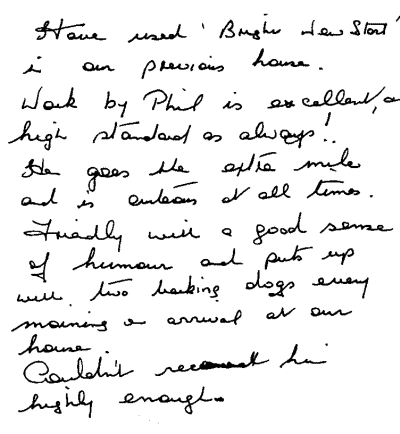 Have used 'Bright New Start'
in our previous house.
Work by Phil is excellent, a
high standard as always!.
He goes the extra mile
and is courteous at all times.
Friendly with a good sense
of humour and puts up
with two barking dogs every
morning on arrival at our
house.
Couldn't recommend him
highly enough.